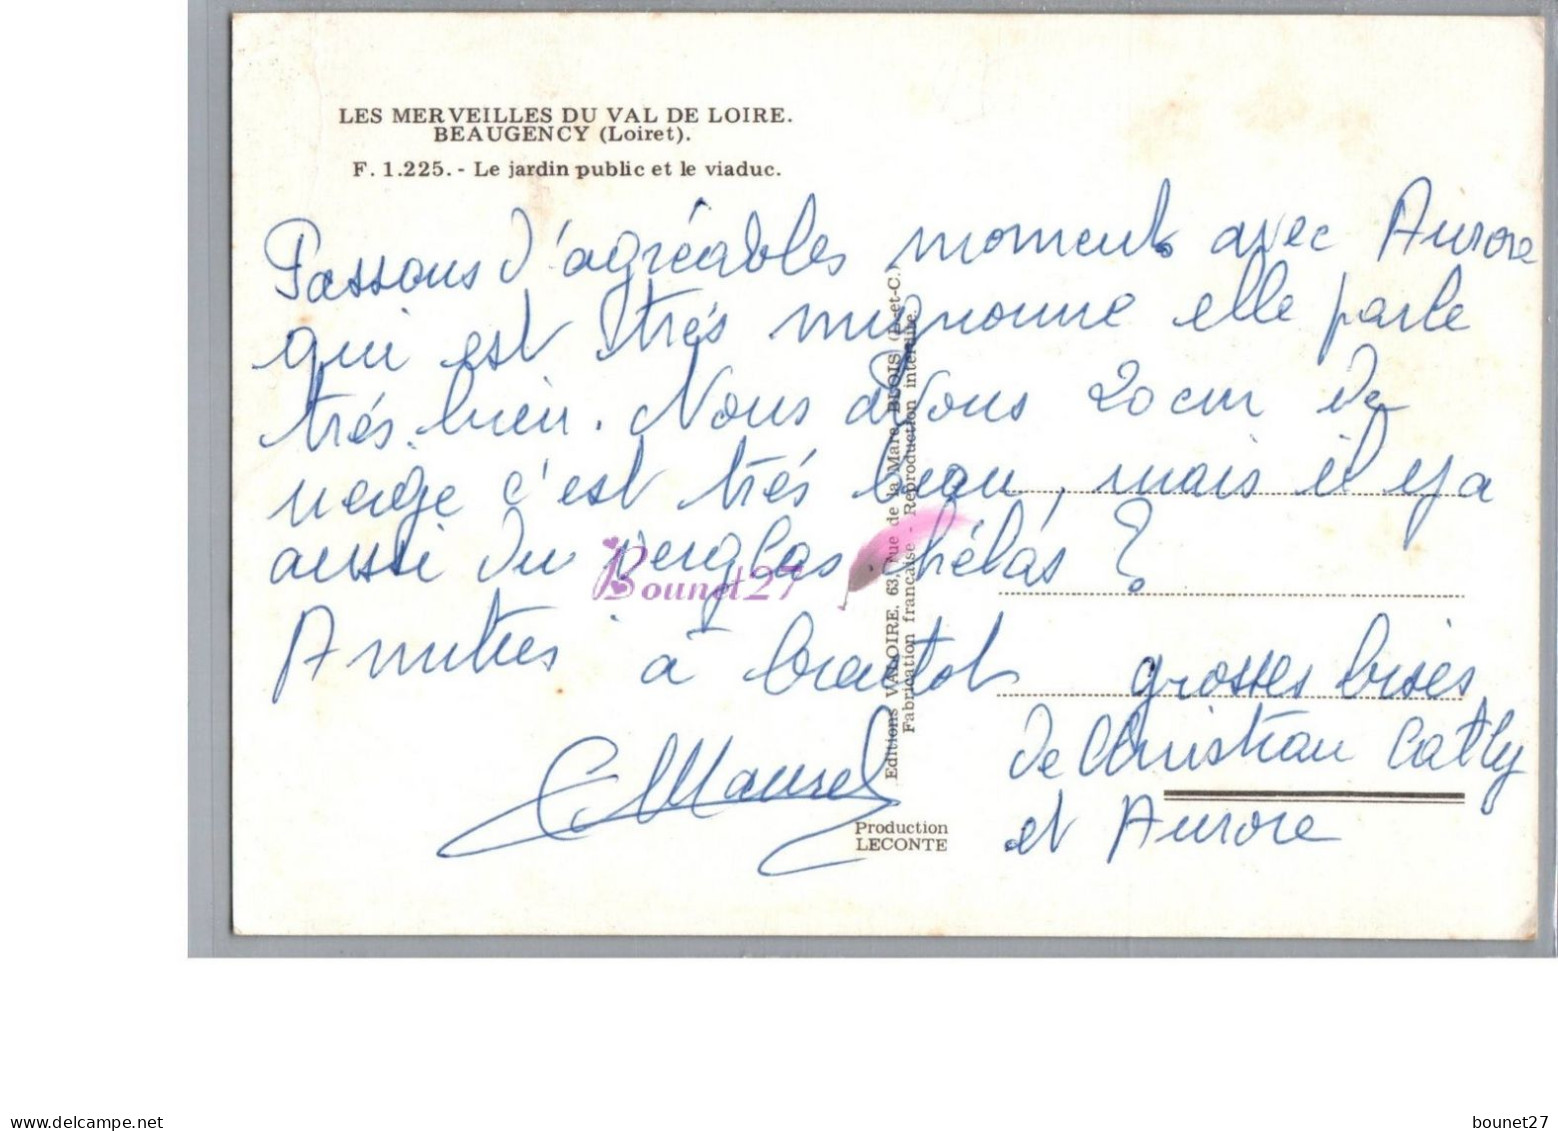 LES MERVEILLES DU VAL DE LOIRE.
BEAUGENCY (Loiret).
F. 1.225. - Le jardin public et le viaduc.
Passons d'agréables moments avec Aurore
qui est très mignonne elle parle
trés bien. Nous avons 20 cm de
neige c'est trés beau, mais il y a
aussi du verglas hélas ?
Amitiés à bientot grosses bises
de Christian Cathy
et Aurore
C Maurel
Editions VALOIRE, 63, rue de la Mare BLOIS (L-et-C.)
Fabrication francaise - Reproduction interdite.
Production
LECONTE
Bounet27
www.delcampe.net
bounet27